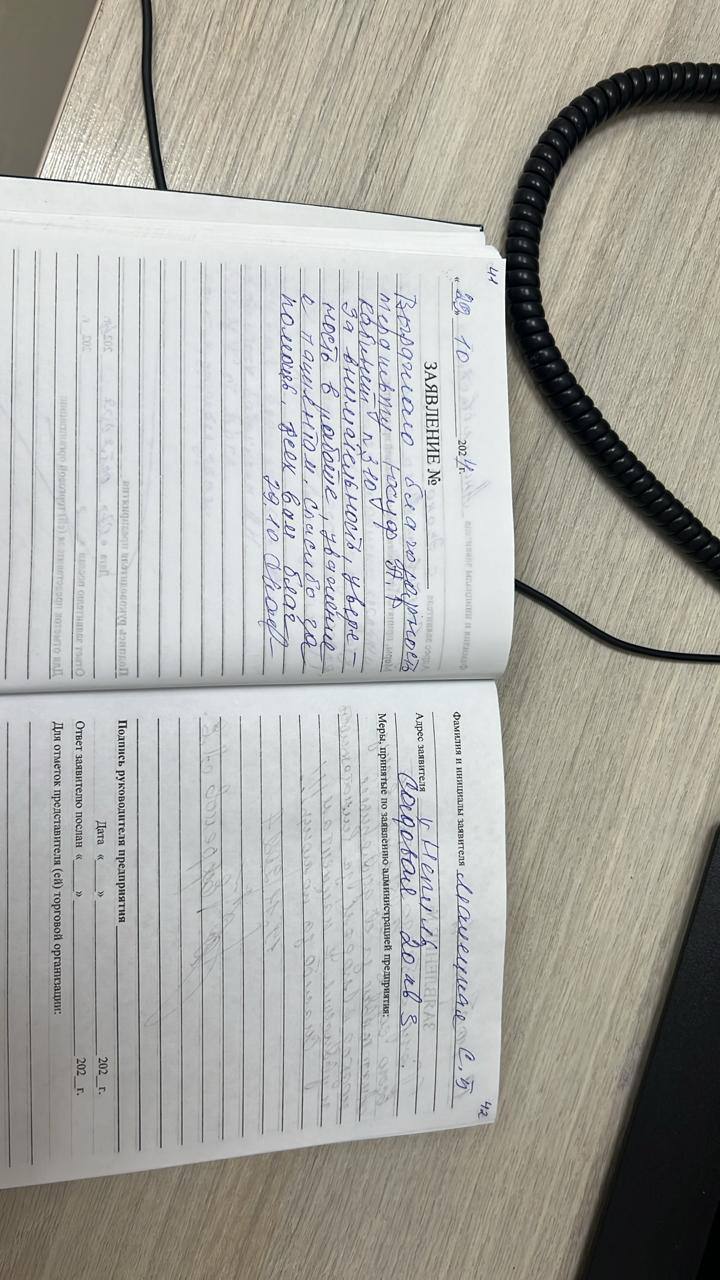 41
« 29 » 10 2024 г.
ЗАЯВЛЕНИЕ №
Выражаю благодарность
терапевту Юсуф А.А
кабинет n 310
за внимательность, уверен-
ность в работе, уважение
к пациентам. Спасибо за
помощь всех вам благ
29.10
42
Фамилия и инициалы заявителя С.Б
Адрес заявителя
Садовая 20 кв 3.
Меры, принятые по заявлению администрацией предприятия:
Подпись руководителя предприятия
Дата « » 202_ г.
Ответ заявителю послан « » 202_ г.
Для отметок представителя (ей) торговой организации: